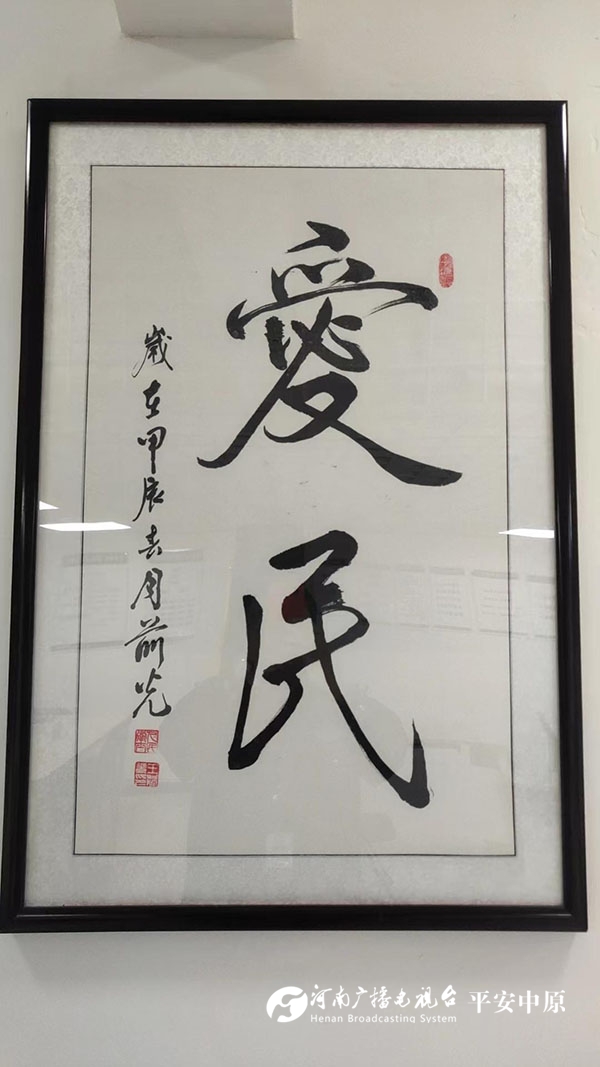 愛民
歲在甲辰春周前光
河南广播电视台 平安中原
Henan Broadcasting System